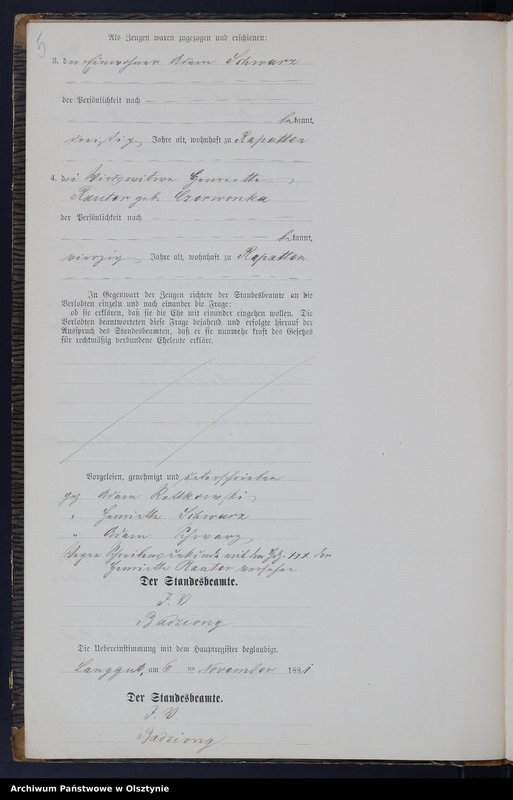 5
Als Zeugen waren zugezogen und erschienen:
3. der Einwohner Adam Schwarz
der Persönlichkeit nach
bekannt,
dreißig Jahre alt, wohnhaft zu Rapatten
4. die Wirtswitwe Henriette
Kantor geb. Czerwonka
der Persönlichkeit nach
bekannt,
vierzig Jahre alt, wohnhaft zu Rapatten
In Gegenwart der Zeugen richtete der Standesbeamte an die
Verlobten einzeln und nach einander die Frage:
ob sie erklären, daß sie die Ehe mit einander eingehen wollen. Die
Verlobten beantworteten diese Frage bejahend und erfolgte hierauf der
Ausspruch des Standesbeamten, daß er sie nunmehr kraft des Gesetzes
für rechtmäßig verbundene Eheleute erkläre.
Vorgelesen, genehmigt und unterschrieben
gez. Adam
" Henriette Schwarz
" Adam Schwarz
Wegen Schreibensunkunde mit den Hdz. +++ der
Henriette Kantor versehen
Der Standesbeamte.
J. V
Badziong
Die Uebereinstimmung mit dem Hauptregister beglaubigt.
Langgut, am 6 ten November 1881
Der Standesbeamte.
J. V
Badziong.
Archiwum Państwowe w Olsztynie